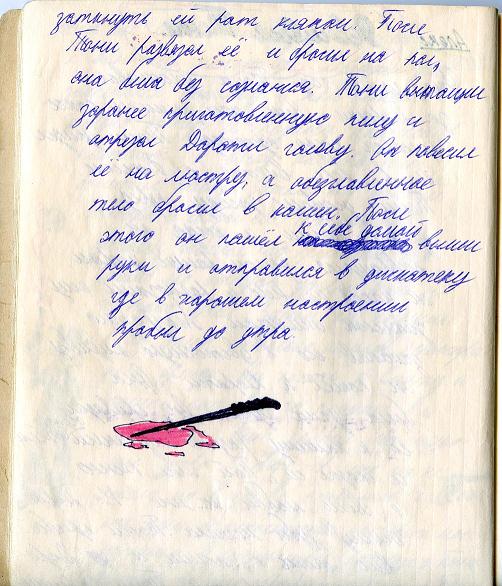 заткнуть ей рот кляпом. После
Тони развязал её и бросил на пол,
она была без сознания. Тони вытащил
заранее приготовленную пилу и
отрезал Дороти голову. Он повесил
её на люстру, а обезглавленное
тело бросил в камин. После
этого он пошёл к себе домой вымыл
руки и отправился в дискотеку
где в хорошем настроении
пробыл до утра.